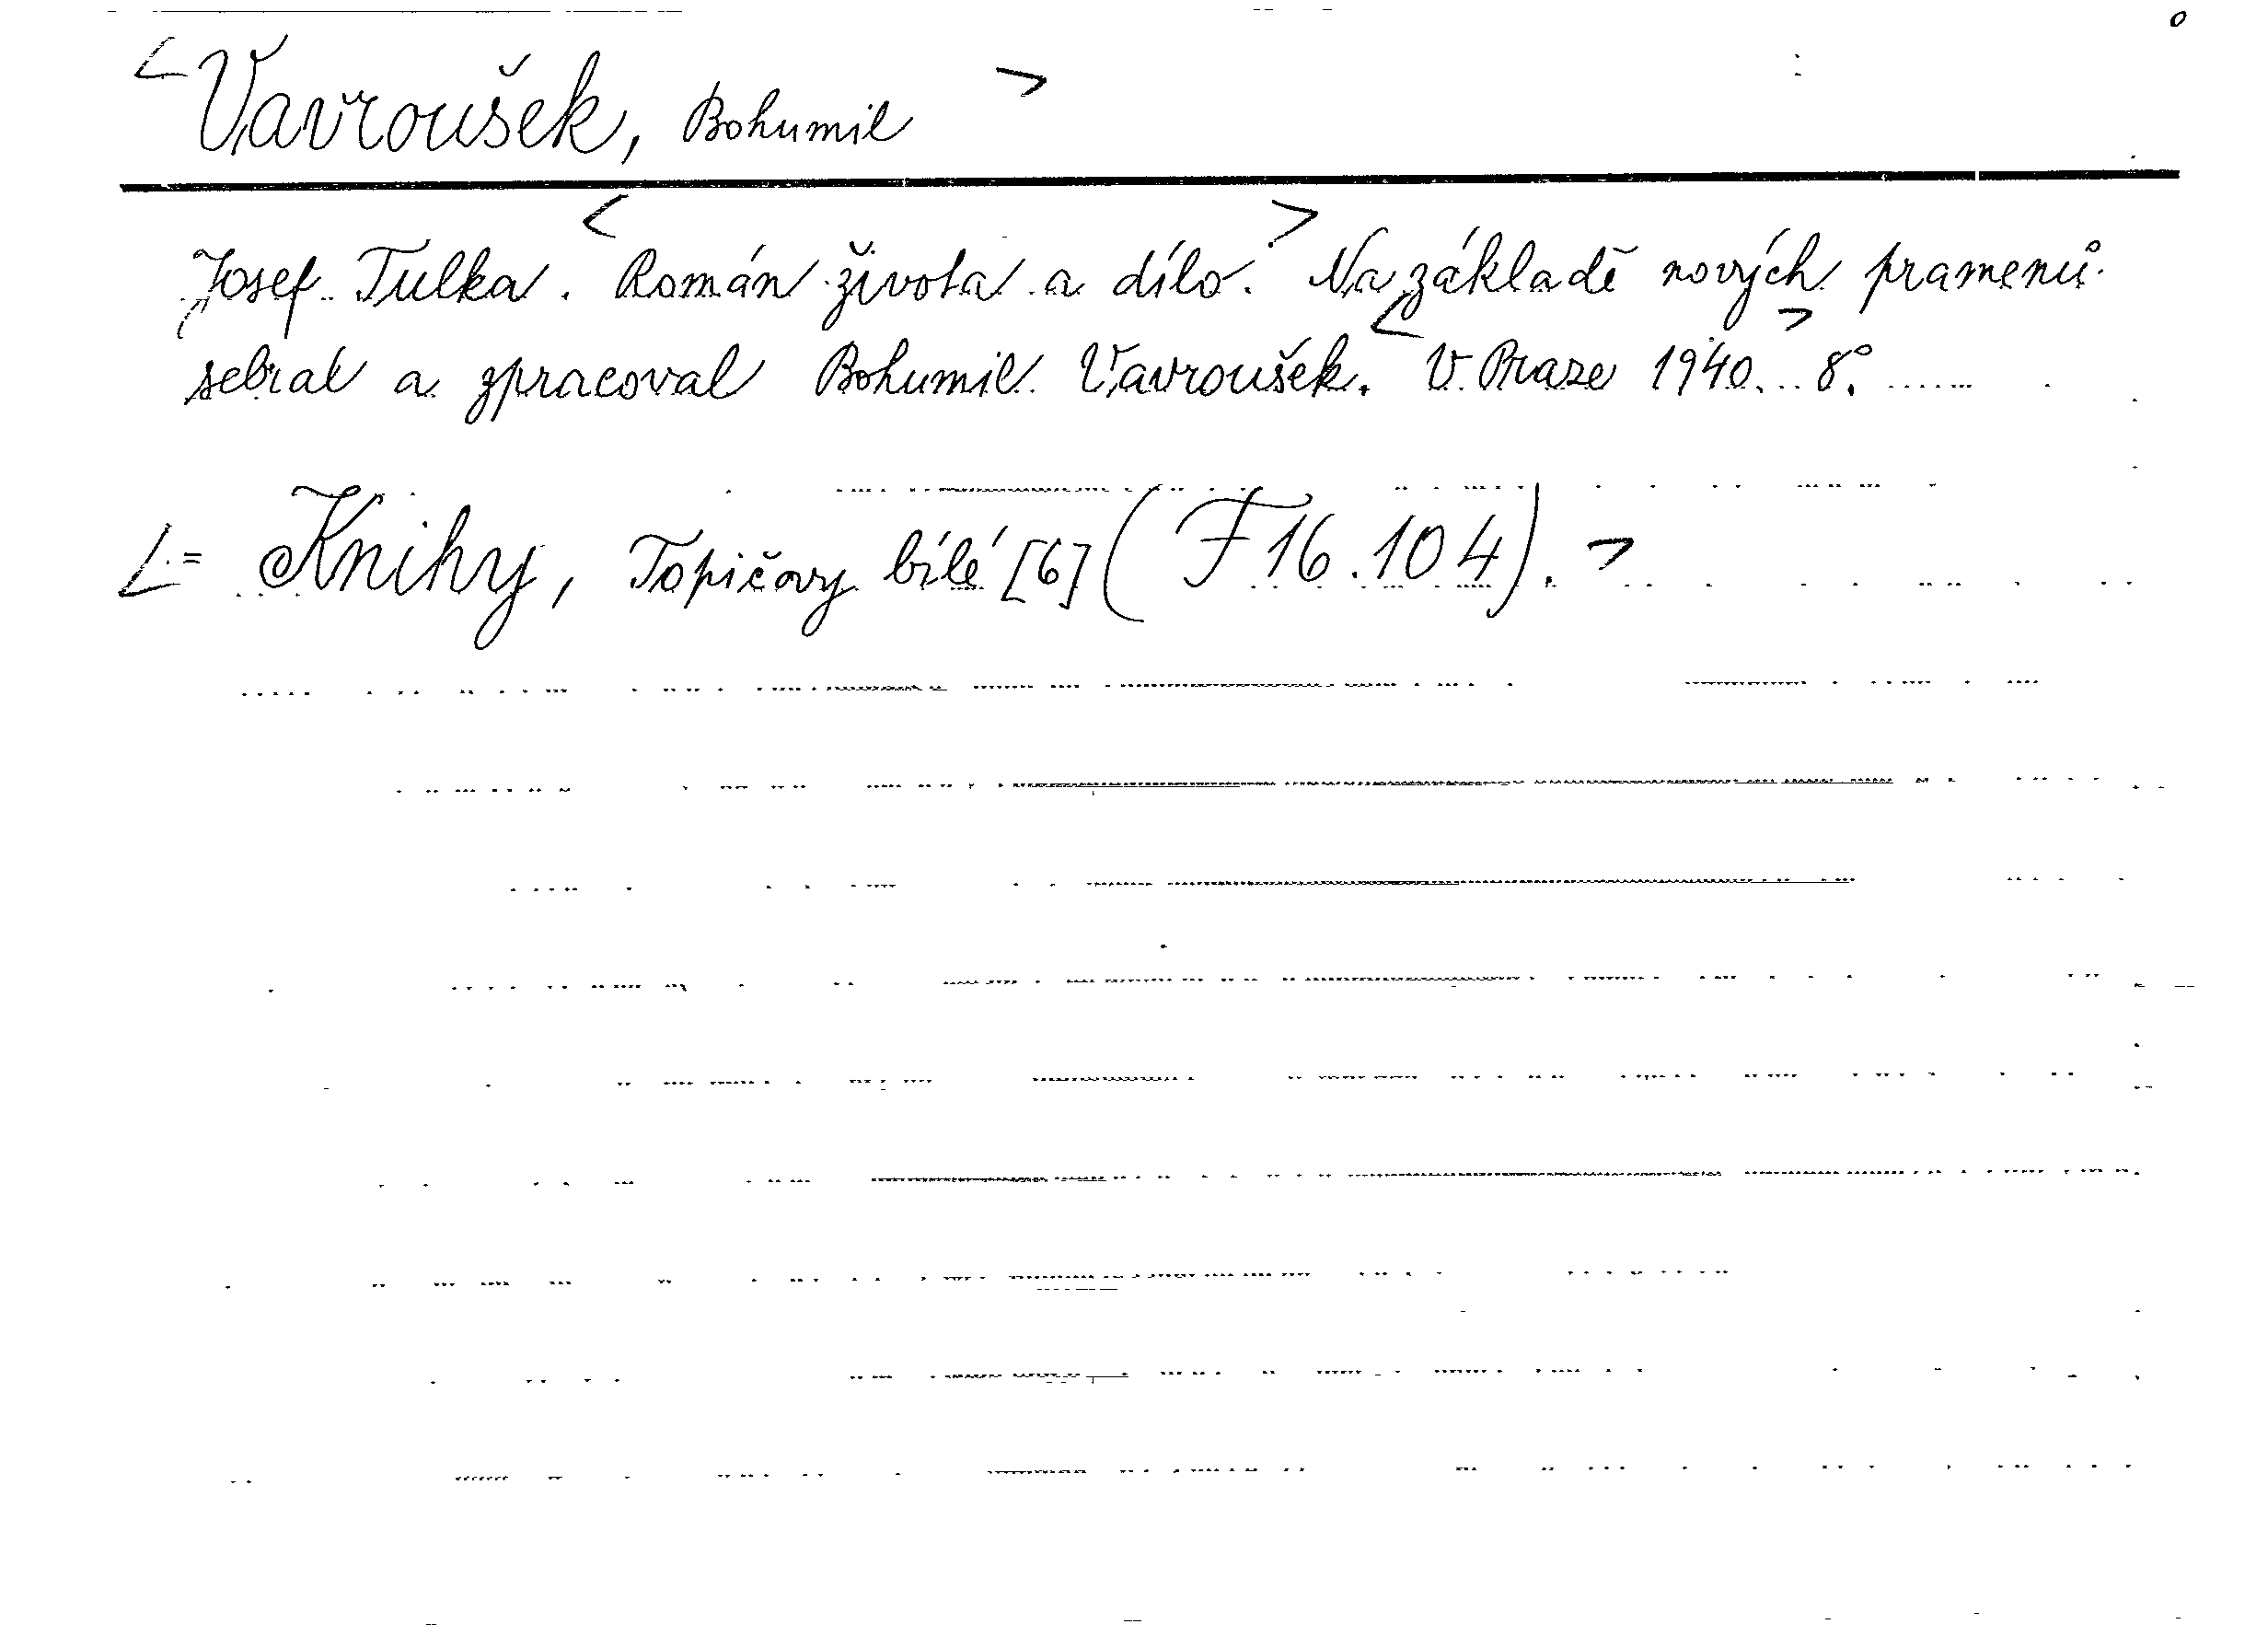 <Vavroušek, Bohumil>
Josef Tulka. <Román života a dílo.> Na základě nových pramenů
sebral a zpracoval Bohumil Vavroušek. <V Praze 1940.> 8°.
<= Knihy, Topičovy bílé [6] (F 16.104).>